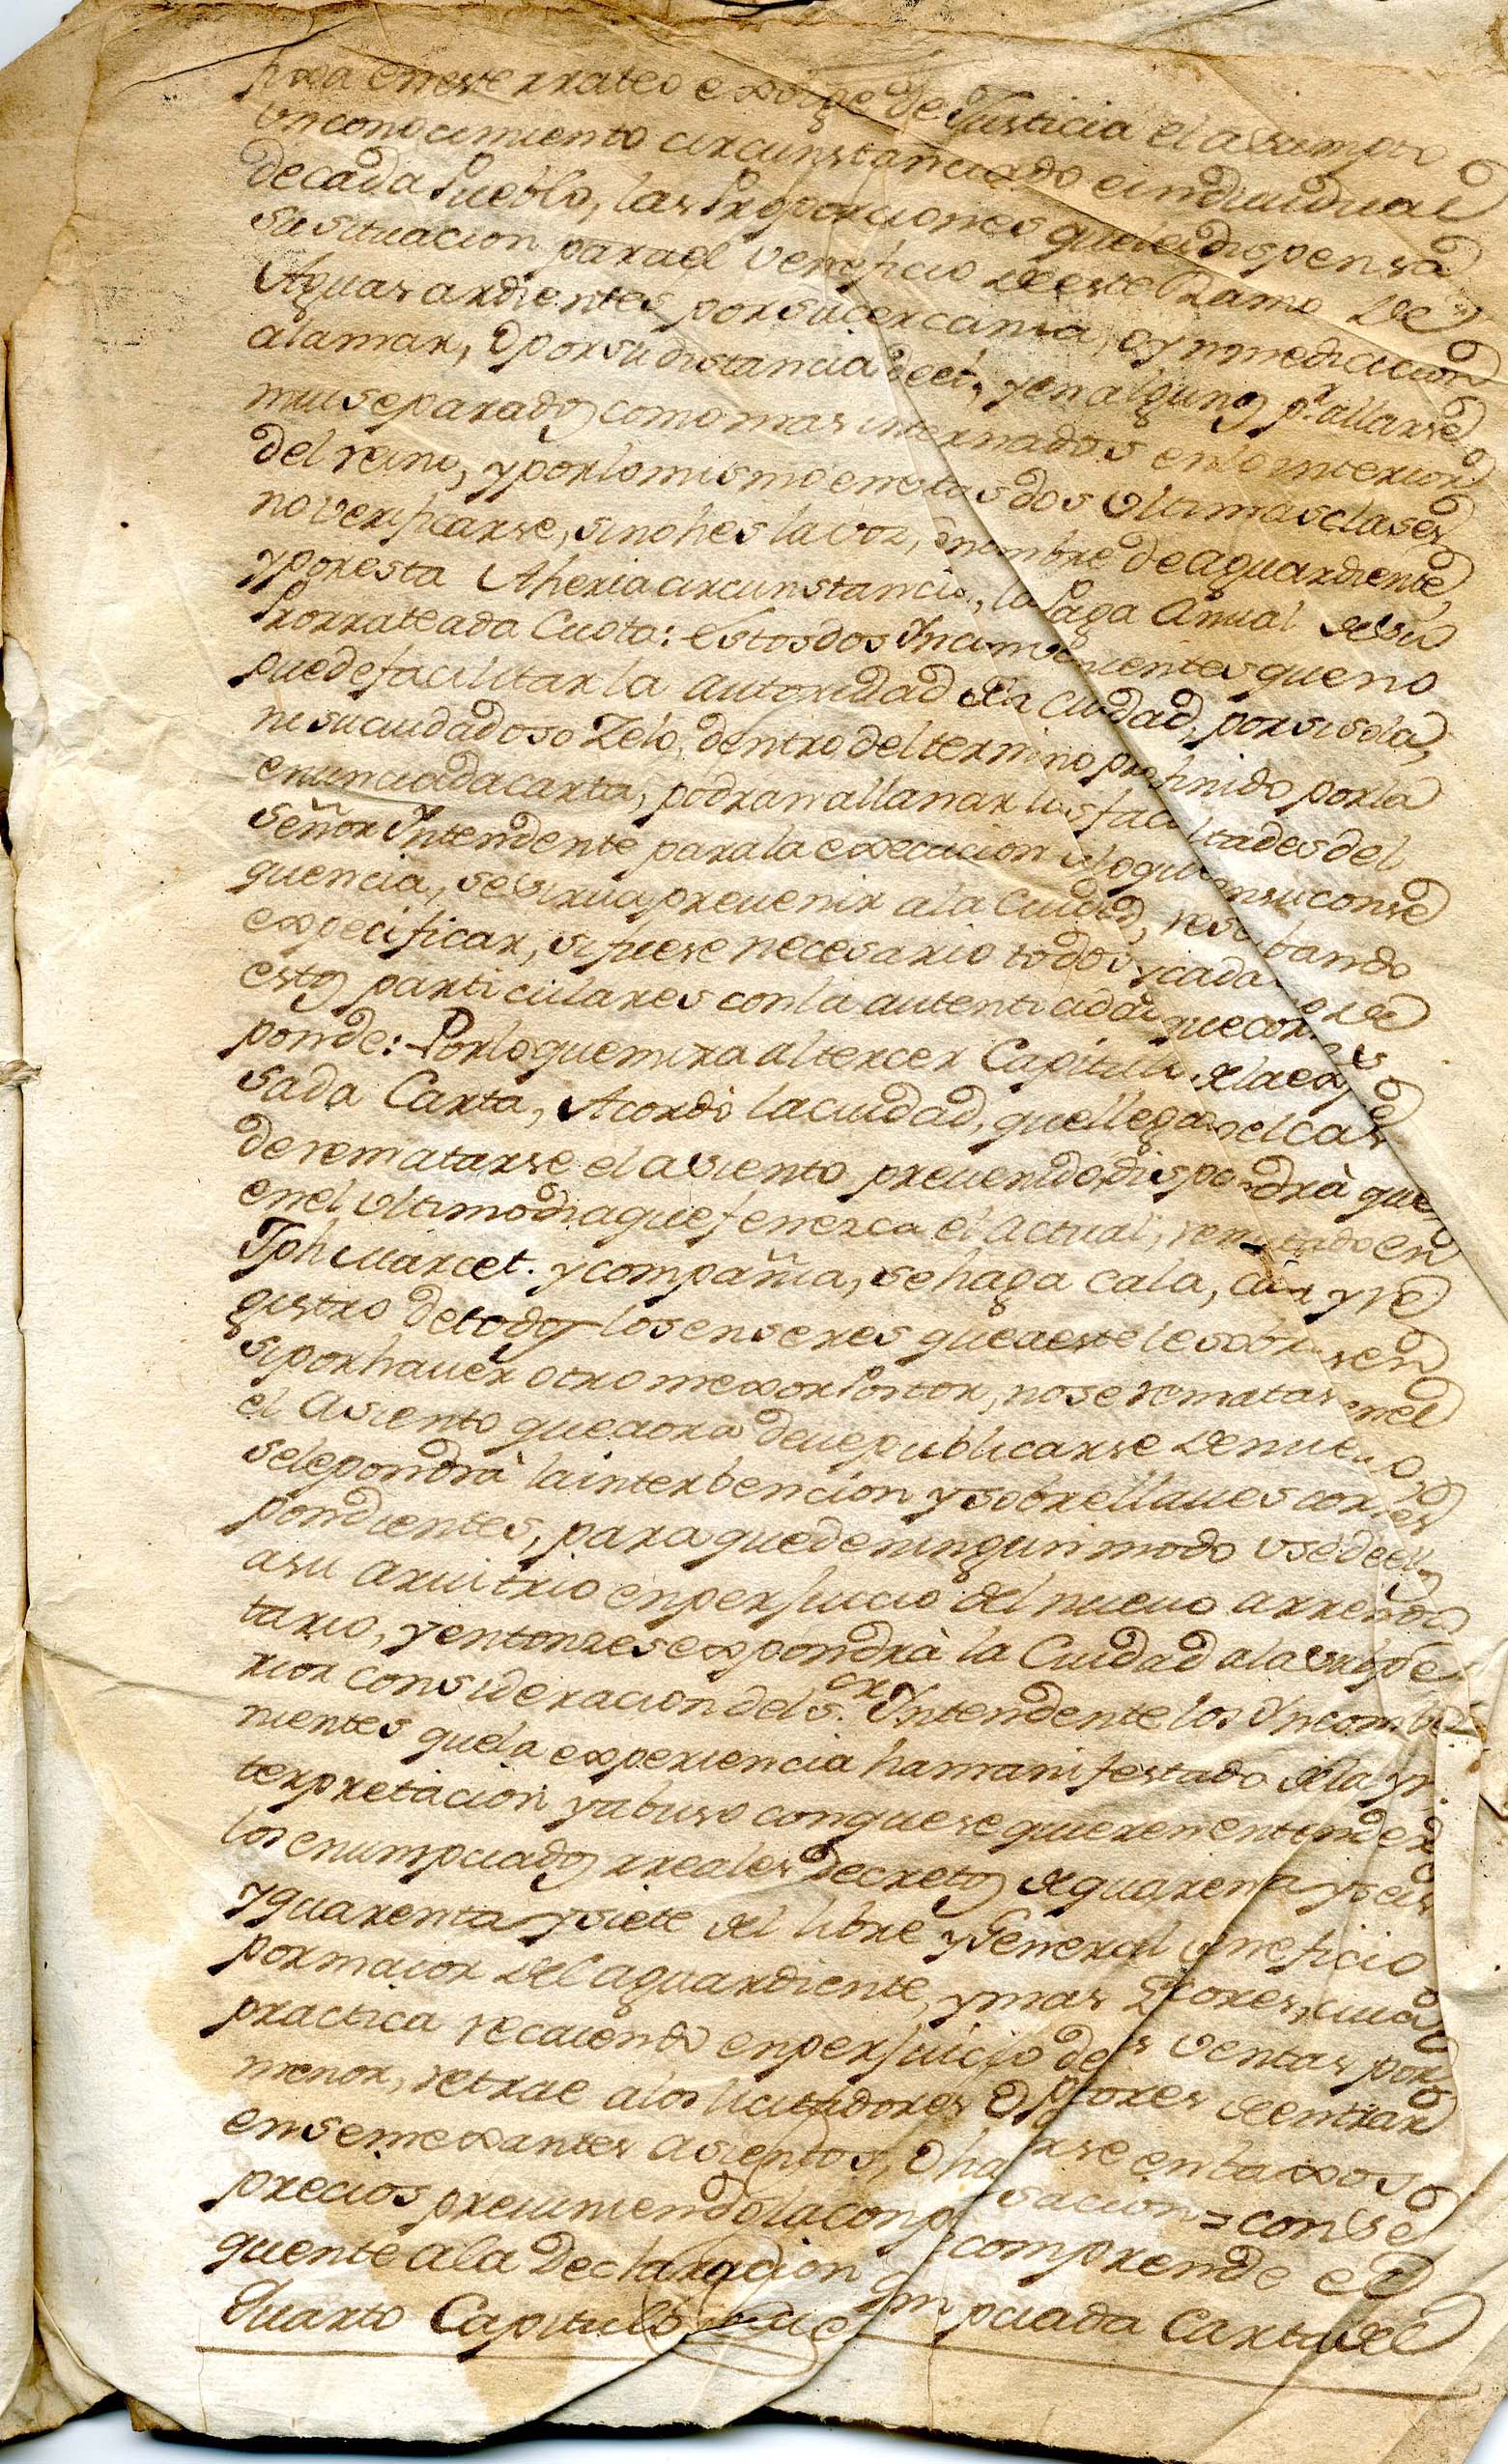 en este rrateo exsige de Justicia el asumpto
un conocimiento circunstanciado e individual
de cada Pueblo, las Proporciones que le dispensa
su situacion para el veneficio de este Ramo de
Aguas ardientes por su cercania, o ynmediacion
a la mar, o por su distancia de el, y en algunos pr. allarse
mui separados como mas internados en lo interior
del reino, y por lo mismo en estas dos ultimas clases
no verificarse, sino hes la voz, o nombre de aguardiente,
y por esta Aheria circunstancia, la Paga Annual de su
Prorrateada Cuota: estos dos Incombenientes que no
puede facilitar la autoridad de la Ciudad, por si sola,
ni su cuidadoso Zelo, dentro del termino prefinido por la
enunciada carta, podran allanar las facultades del
Señor Intendente para la execucion de lo que en su conse
quencia, se sirva prevenir a la Ciudad, resultando
expecificar, si fuese necesario todos y cada uno de
estos particulares con la autenticidad que corres
ponde: Por lo que mira al tercer Capitulo de la expre
sada Carta, Acordó la ciudad, que llegado el caso
de rematarse el asiento prevenido, dispondrà que
en el ultimo dia que fenezca el actual, rematado en
Jph Marcet. y compañia, se haga cala, cata y re
gistro de todos los enseres que a este le sobrasen
si por haver otro mexor Postor, no se rematase en el
el Asiento que aora deve publicarse de nuevo, y
se le pondrà la interbencion y sobrellaves corres
pondientes, para que de ningun modo use de ellos
a su arvitrio en perjuicio del nuevo arrenda
tario, y entonzes expondrà la Ciudad a la supe
rior consideracion del S.or Intendente los Incombe
nientes que la experiencia ha manifestado de la yn
terpretacion y abuso con que se quieren entender
los enumpciados rreales Decretos de quarenta y seis
y quarenta y siete del libre y General veneficio
por maior del aguardiente, y mas Licores, cuia
practica recaiendo en perjuicio de las ventas por
menor, retrae a los licitadores o Postores de entrar
en semexantes asientos, o hacerse en baxos
precios previniendose la compensacion = conse
quente a la Declaracion que comprende el
Quarto Capitulo de la enumpciada Carta del